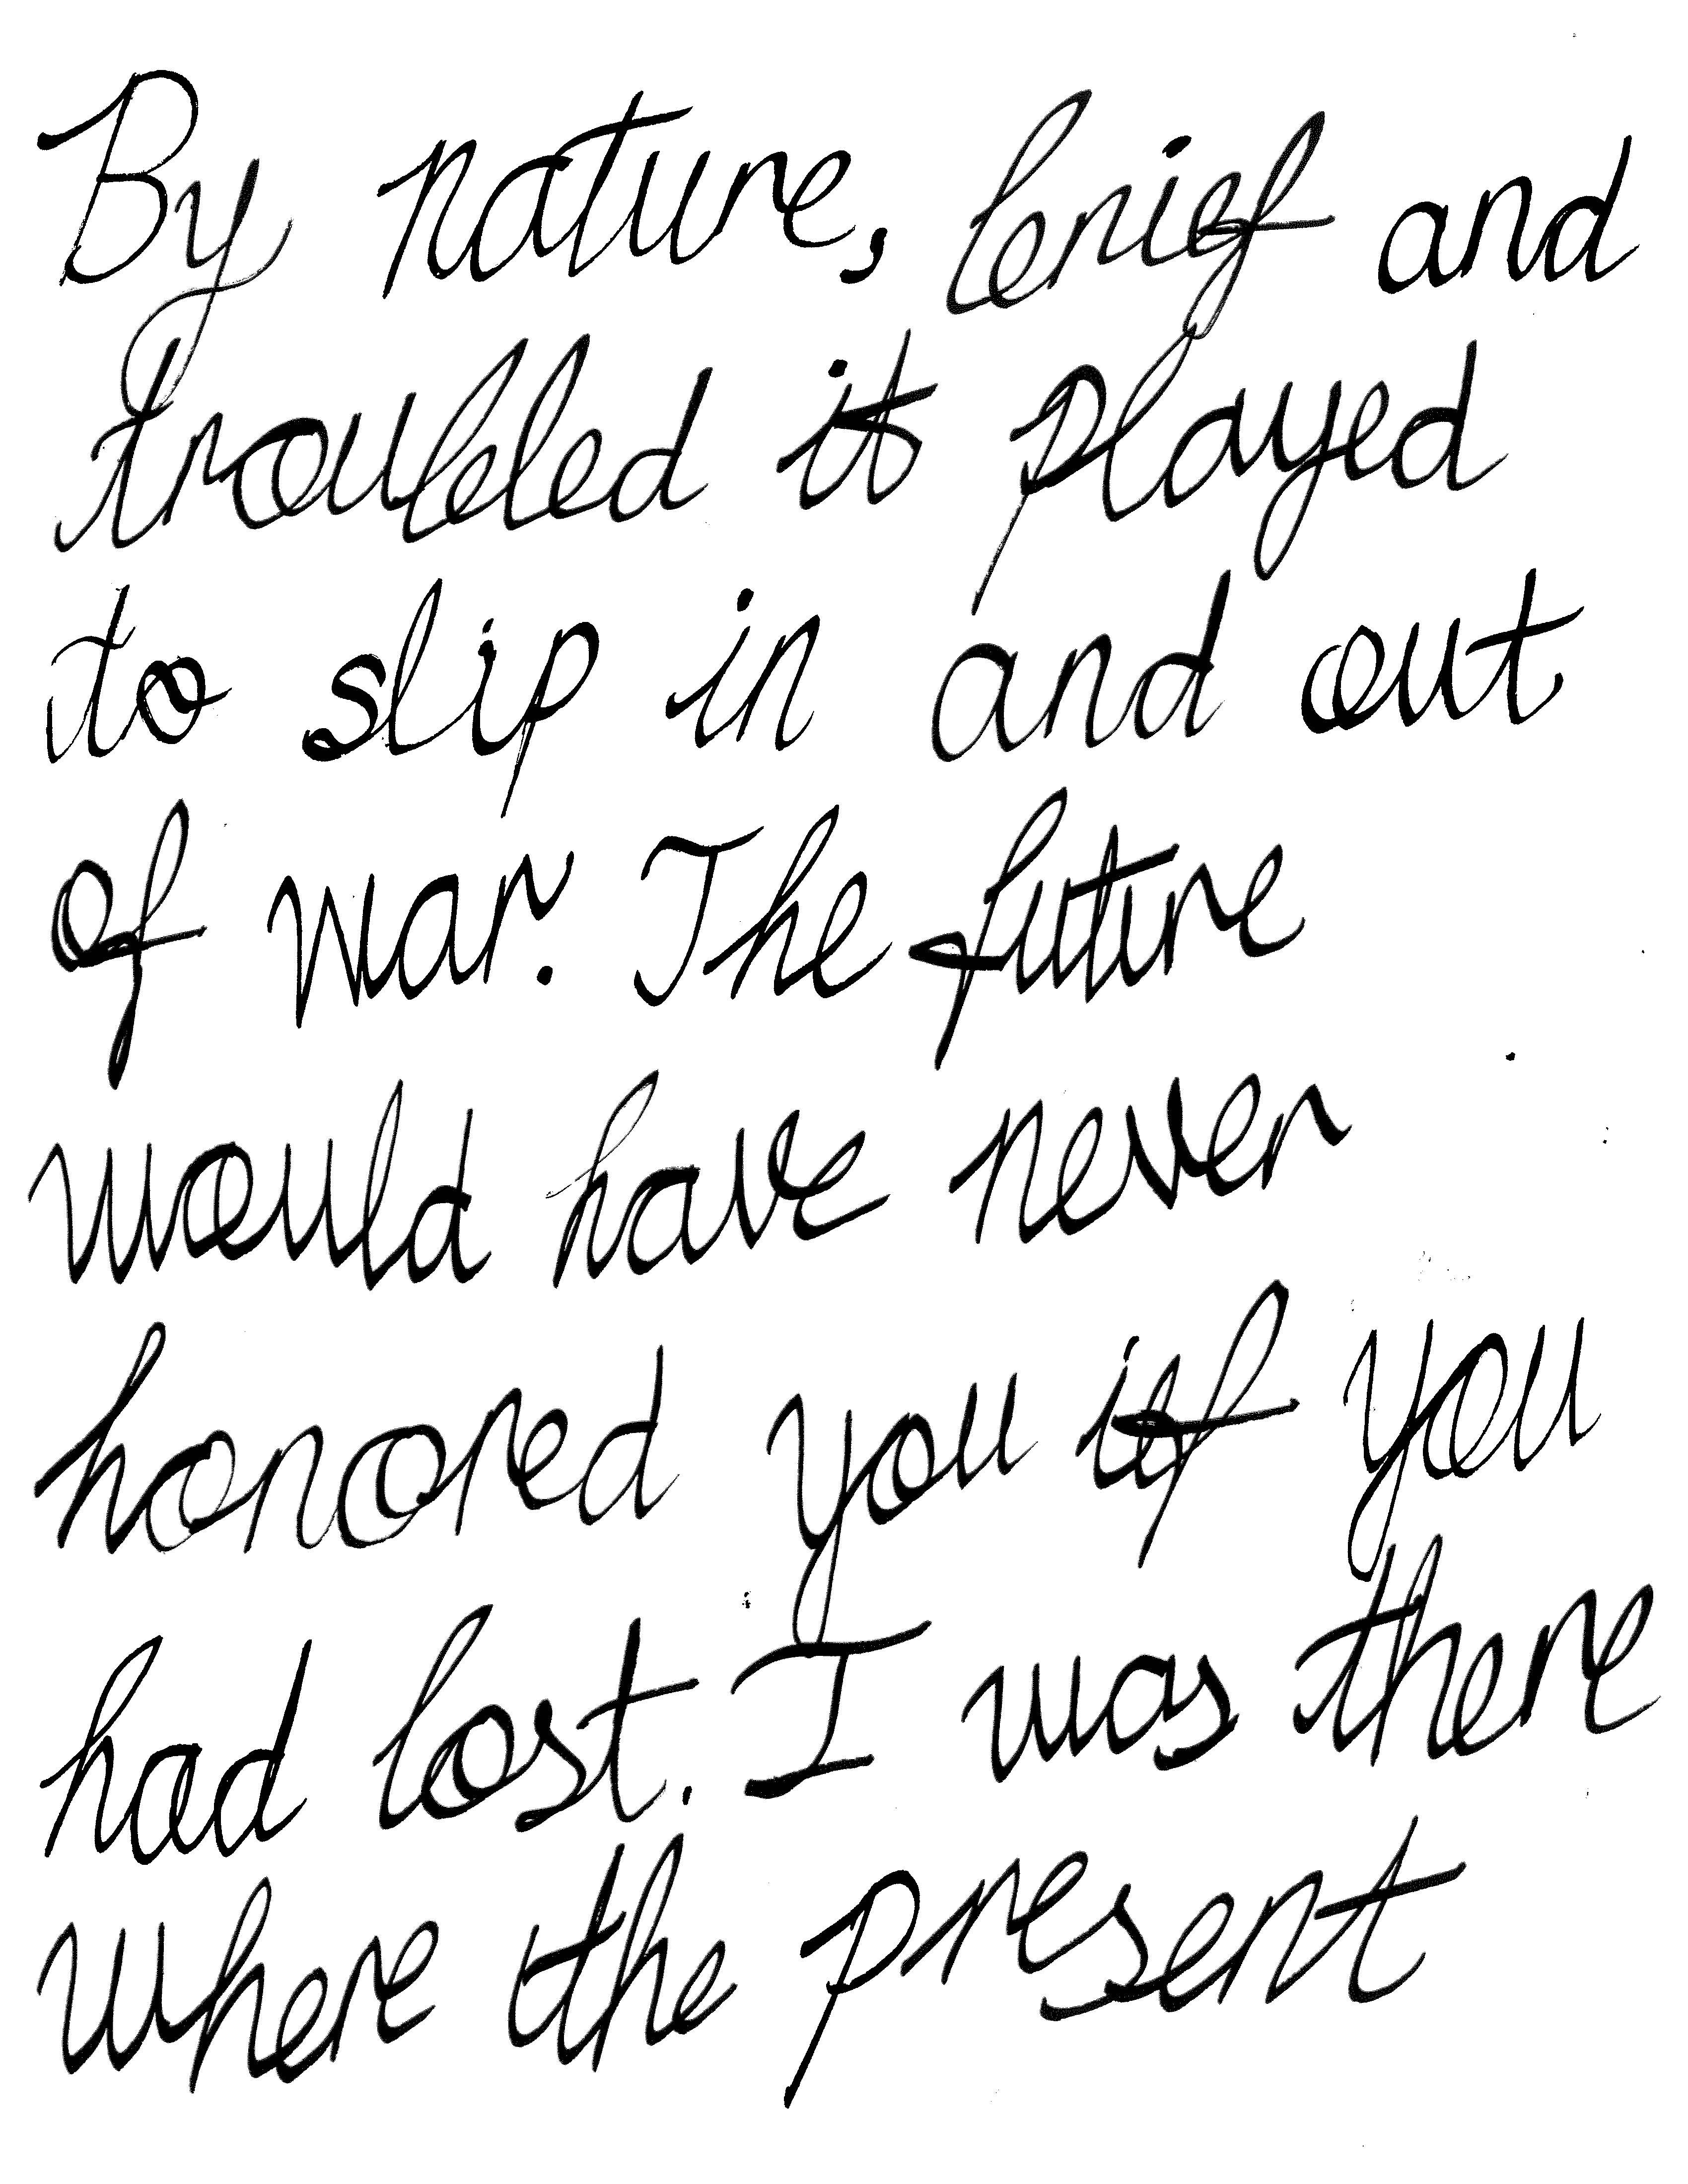 By nature, brief and
troubled it played
to slip in and out
of war. The future
would have never
honored you if you
had lost. I was there
where the present